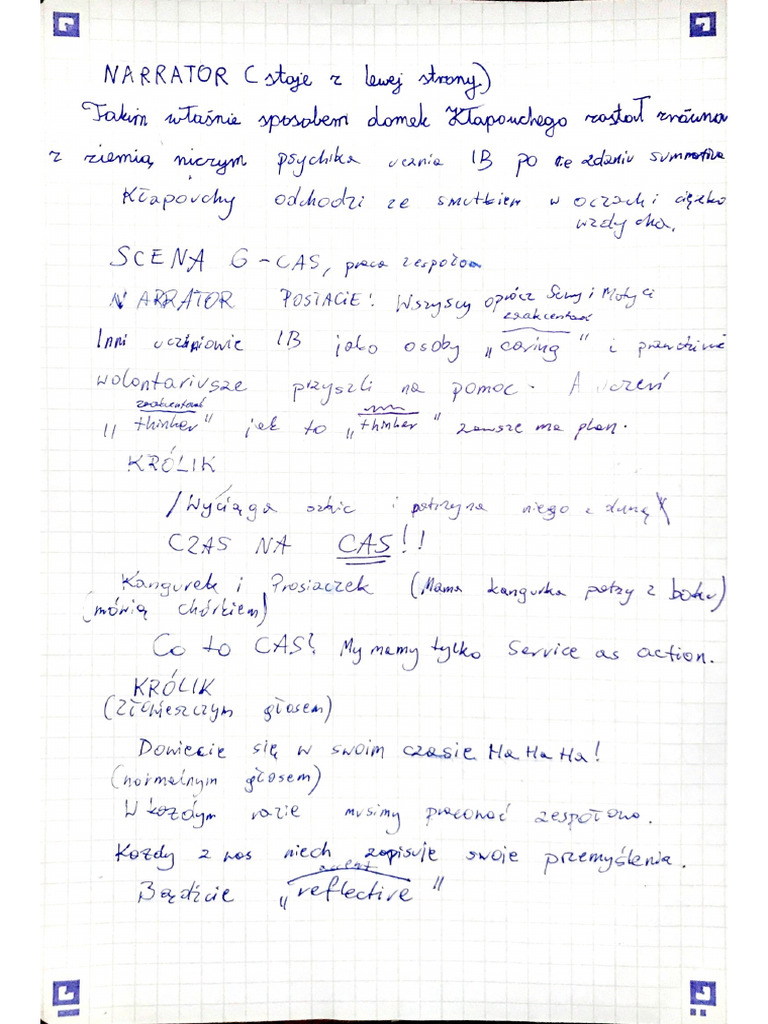 NARRATOR (stoje z lewej strony)
Takim właśnie sposobem domek Kłapouchego został zrównan
z ziemią, niczym psychika ucznia IB po nie zdaniu summativa
Kłapouchy odchodzi ze smutkiem w oczach i ciężko
wzdycha.
SCENA 6 - CAS, praca zespołow
NARRATOR POSTACIE! Wszyscy oprócz Sowy i
zaakcentować
Inni uczniowie IB jako osoby „caring" i prawdziwi
wolontariusze przyszli na pomoc. A uczeń
zaakcentować
„thinker" jak to „thinker" zawsze ma plan.
KRÓLIK
/Wyciąga szkic i patrzy na niego z dumą\
CZAS NA CAS!!
Kangurek i Prosiaczek (Mama kangurka patrzy z boku)
(mówią chórkiem)
Co to CAS? My mamy tylko Service as action.
KRÓLIK
(Złowieszczym głosem)
Dowiecie się w swoim czasie Ha Ha Ha!
(normalnym głosem)
W każdym razie musimy pracować zespołowo.
Każdy z nas niech zapisuje swoje przemyślenia.
akcent
Bądźcie „reflective"